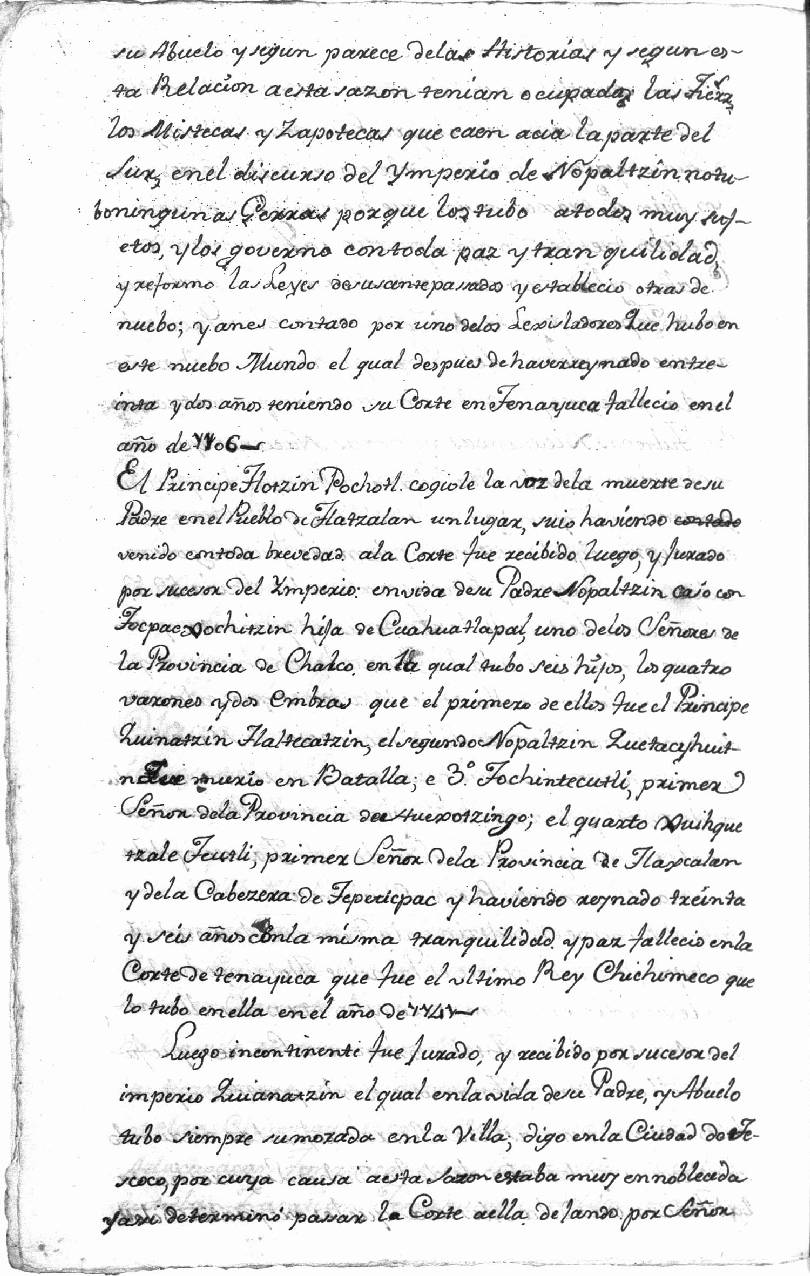 su Abuelo y segun parece de las Historias y segun es-
ta Relacion a esta sazon tenian ocupadas las Tierrz
los Mistecas y Zapotecas que caen acia la parte del
Sur, en el discurso del Ymperio de Nopaltzin no tu-
bo ningunas Gerras porque los tubo a todos muy suj-
etos, y los governo con toda paz y tranquilidad,
y reformo las Leyes de sus antepasados y establecio otras de
nuebo; y anes contado por uno de los Lexisladores Que hubo en
este nuebo Mundo el qual despues de haver reynado en tre-
inta y dos años teniendo su Corte en Tenayuca fallecio en el
año de 1106—
El Principe Tlotzin Pochotl. cogiole la voz de la muerte de su
Padre en el Pueblo de Tlatzalan un lugar, suio haviendo contado
venido con toda brevedad a la Corte fue recibido luego, y Jurado
por sucesor del Ymperio: en vida de su Padre Nopaltzin caso con
Tocpacxochitzin hija de Cuahuatlapal, uno de los Señores de
la Provincia de Chalco, en la qual tubo seis hijos, los quatro
varones y dos Embras que el primero de ellos fue el Principe
Quinatzin Tlaltecatzin, el segundo Nopaltzin Quetaceyhuit-
n Fue murio en Batalla; e 3.º Tochintecutli, primer
Señor de la Provincia de Huexotzingo; el quarto Xuihque
tzale Tcutli, primer Señor de la Provincia de Tlaxcalan
y de la Cabezera de Tepeticpac y haviendo reynado treinta
y seis años con la misma tranquilidad y paz fallecio en la
Corte de tenayuca que fue el ultimo Rey Chichimeco que
lo tubo en ella en el año de 1141—
Luego incontinenti fue Jurado, y recibido por sucesor del
imperio Quianatzin el qual en la vida de su Padre, y Abuelo
tubo siempre su morada en la Villa, digo en la Ciudad de Te-
scoco, por cuya causa a esta sazon estaba muy ennoblecida
y asi determinó passar la Corte a ella dejando por Señor